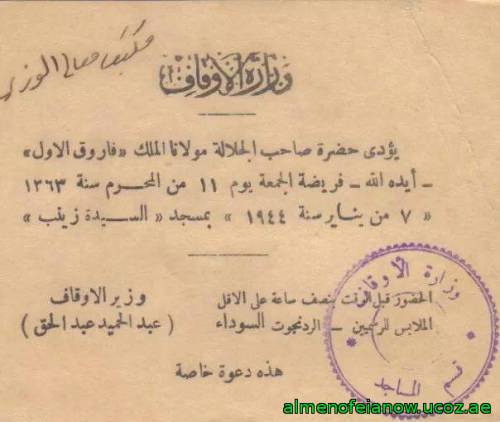 مكتب معالي الوزير
وزارة الأوقاف
يؤدى حضرة صاحب الجلالة مولانا الملك «فاروق الاول»
ـ أيده الله ـ فريضة الجمعة يوم ١١ من المحرم سنة ١٣٦٣
« ٧ من يناير سنة ١٩٤٤ » بمسجد « السيدة زينب »
الحضور قبل الوقت بنصف ساعة على الاقل
الملابس للرسميين ـ الردنجوت السوداء
وزير الاوقاف
( عبد الحميد عبد الحق )
هذه دعوة خاصة
وزارة الاوقاف
قسم المساجد
almenofeianow.ucoz.ae